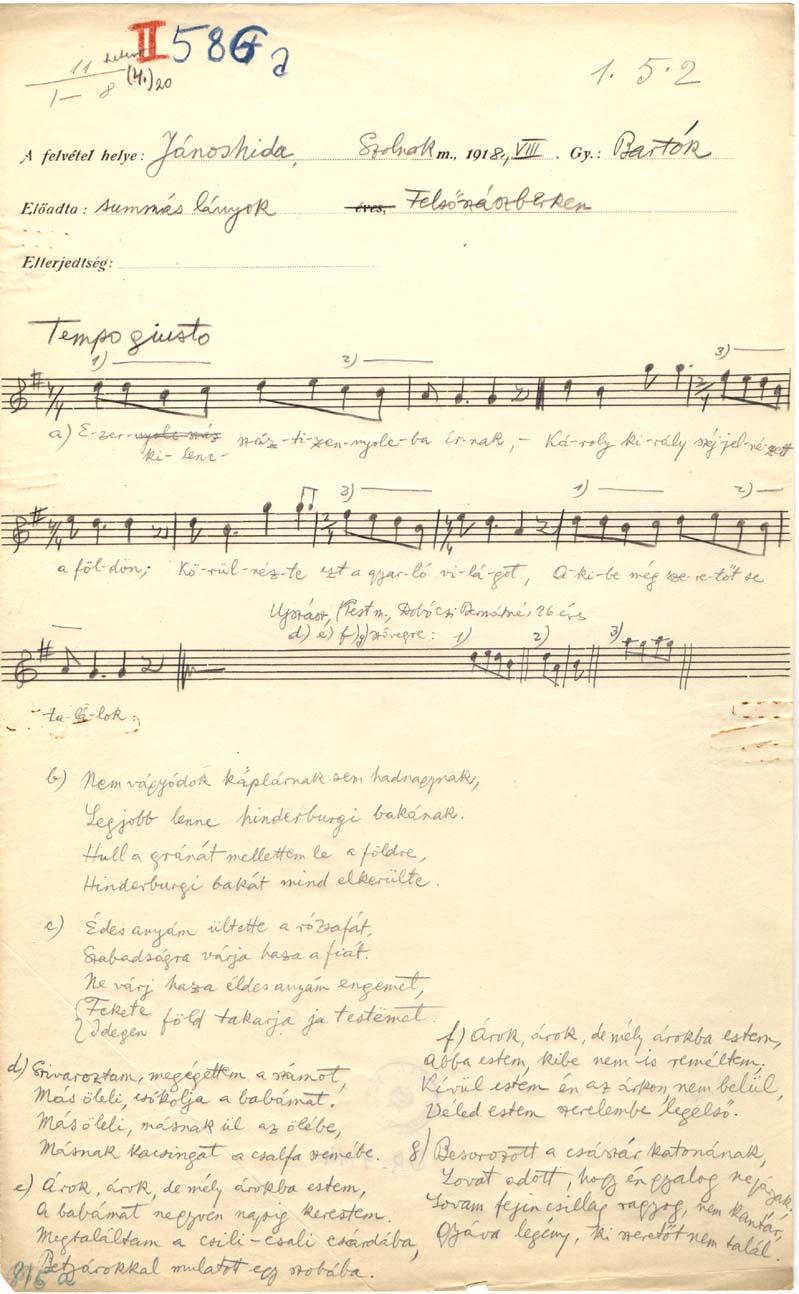 II 586 a
11
1–8 (4.) 20
1. 5. 2
A felvétel helye: Jánoshida, Szolnok m., 1918., VIII. Gy.: Bartók
Előadta: summás lányok éves, Felsőszászberken
Elterjedtség:
Tempo giusto
1) 2) 3)
a) E-zer-nyolc száz száz-ti-zen-nyolc-ba ír-nak, - Ká-roly ki-rály széj-jel-né-zett
ki-lenc-
3) 1) 2)
a föl-dön; Kö-rül-néz-te ezt a gyar-ló vi-lá-got, A-ki-be még sze-re-tőt se
Ujszász, (Pest m., Dobóczi Bernátné, 26 éves
d) e) f) g) szövegre: 1) 2) 3)
ta-lá-lok.
b) Nem vágyódok káplárnak sem hadnagynak,
Legjobb lenne hinderburgi bakának.
Hull a gránát mellettem le a földre,
Hinderburgi bakát mind elkerülte.
c) Édes anyám ültette a rózsafát,
Szabadságra várja haza a fiát.
Ne várj haza éldes anyám engemet,
Fekete
Idegen föld takarja ja testëmet.
d) Szivaroztam, megégettem a számot,
Más öleli, csókolja a babámat.
Más öleli, másnak ül az ölébe,
Másnak kacsingat a csalfa szemébe.
e) Árok, árok, de mély árokba estem,
A babámat negyven napig kerestem.
Megtaláltam a csili-csali csárdába,
Betyárokkal mulatott egy szobába.
f) Árok, árok, de mély árokba estem,
Abba estem, kibe nem is reméltem;
Kívül estem én az árkon, nem belül,
Véled estem szerelembe legelső.
g) Besorozott a császár katonának,
Lovat adott, hogy én gyalog ne járjak;
Lovam fejin csillag ragyog, nem kantár,
Gyáva legény, ki szeretőt nem talál.
816 a